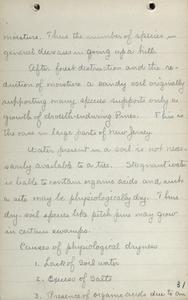 moisture. Thus the number of species in
general decreases in going up a hill.
After forest destruction and the re-
duction of moisture a sandy soil originally
supporting many species supports only a
growth of drouth-enduring Pines. This
is the case in large parts of New Jersey.
Water present in a soil is not neces-
sarily available to a tree. Stagnant water
is liable to contain organic acids and such
a site may be physiologically dry. Thus
dry-soil species like pitch pine may grow
in certain swamps.
Causes of physiological dryness
1. Lack of soil water
2. Excess of Salts
3. Presence of organic acids due to an